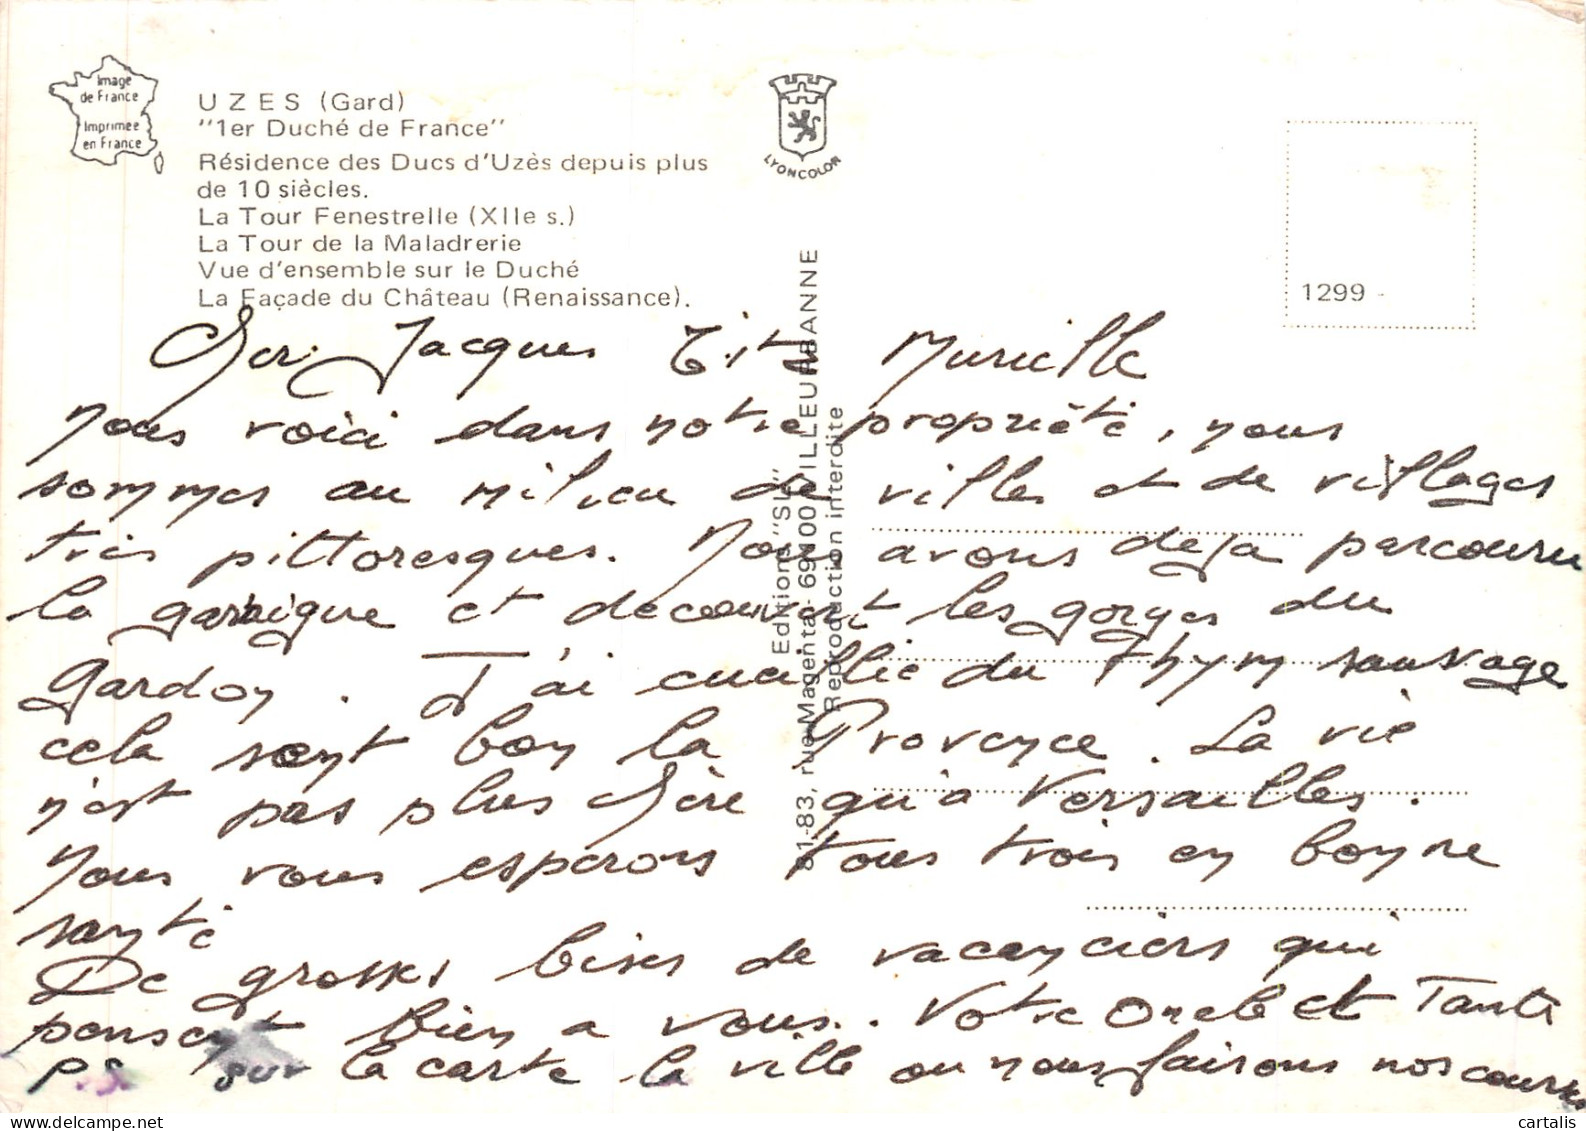 Image
de France
Imprimée
en France
UZES (Gard)
"1er Duché de France"
Résidence des Ducs d'Uzès depuis plus
de 10 siècles.
La Tour Fenestrelle (XIIe s.)
La Tour de la Maladrerie
Vue d'ensemble sur le Duché
La Façade du Château (Renaissance).
LYONCOLOR
1299 -
Editions "SL"
81-83, rue Magenta - 69100 VILLEURBANNE
Reproduction interdite
Cher Jacques Murielle
Nous voici dans notre propriété, nous
sommes au milieu de villes et de villages
très pittoresques. Nous avons deja parcouru
la garrigue et decouvert les gorges du
Gardon. J'ai cueillie du thym sauvage
cela sent bon la Provence. La vie
n'est pas plus chère qu'a Versailles.
Nous vous esperons tous trois en bonne
santé
De grosses bises de vacanciers qui
pensent bien a vous.. Votre Oncle et Tante
PS. sur la carte la ville ou nous fairons nos courses
cartalis